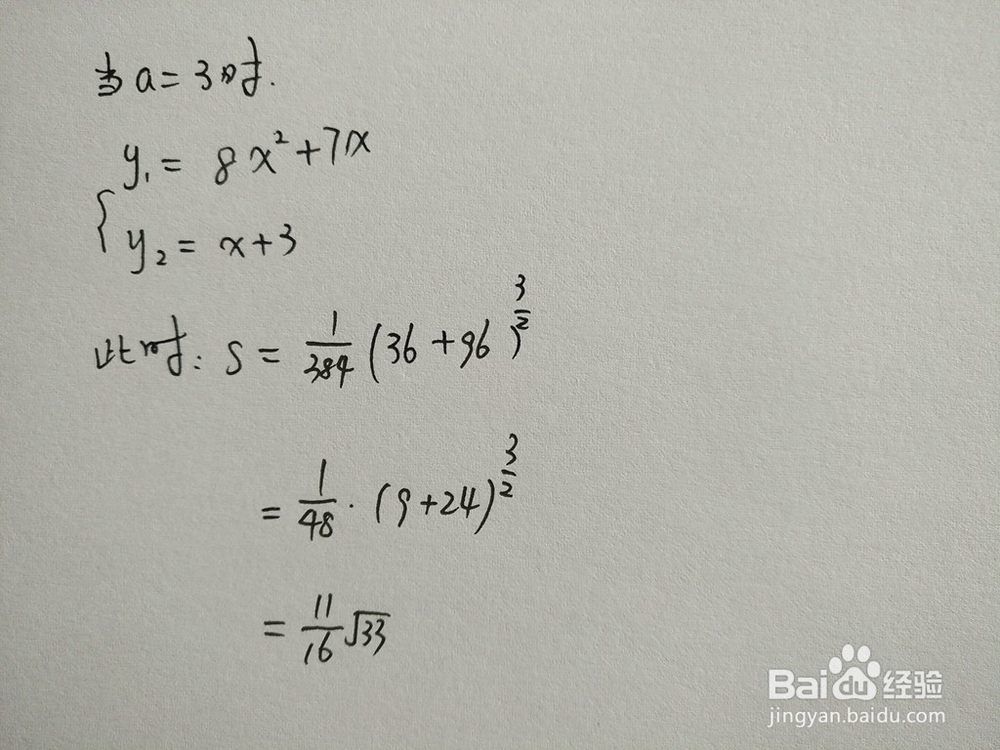 当a=3时.
y₁= 8x²+7x
{
y₂= x+3
此时: S = 1/384 (36+96)^(3/2)
= 1/48 · (9+24)^(3/2)
= 11/16 √33
Baidu 经验
jingyan.baidu.com